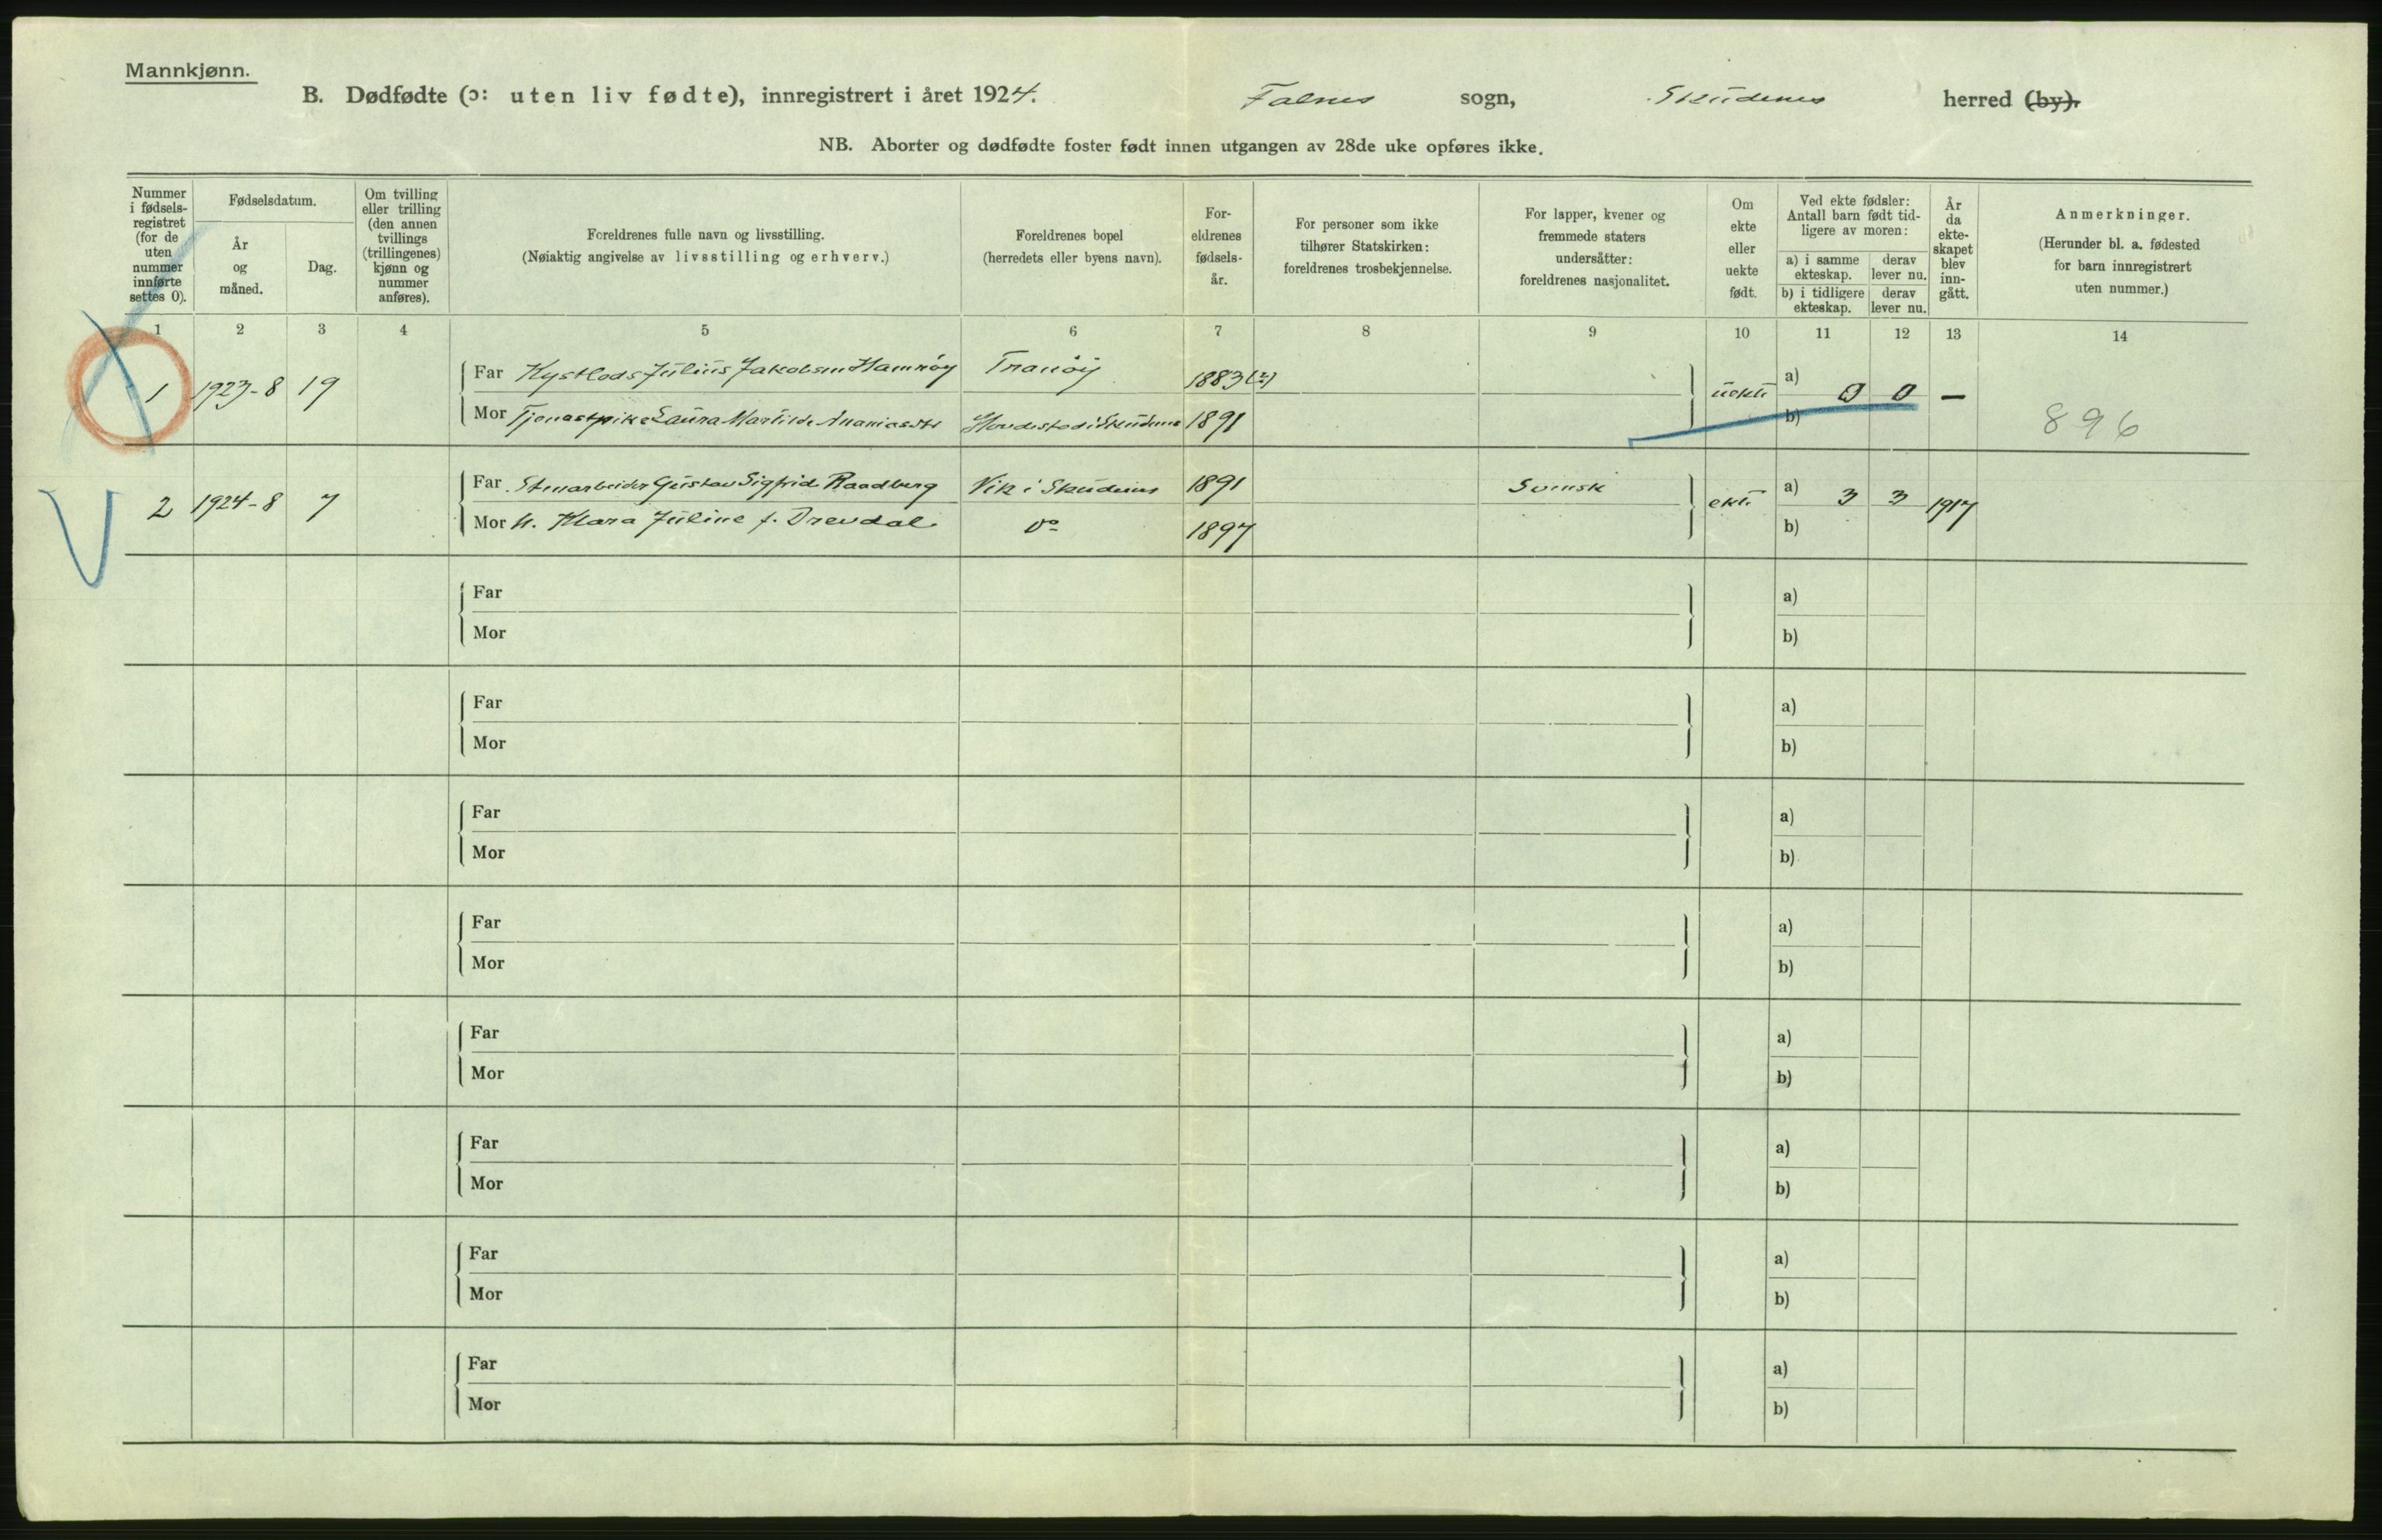 Mannkjønn.
B. Dødfødte (ɔ: uten liv fødte), innregistrert i året 1924. Falnes sogn, Skudenes herred (by).
NB. Aborter og dødfødte foster født innen utgangen av 28de uke opføres ikke.
Nummer i fødselsregistret (for de uten nummer innførte settes 0).
Fødselsdatum.
År og måned.
Dag.
Om tvilling eller trilling (den annen tvillings (trillingenes) kjønn og nummer anføres).
Foreldrenes fulle navn og livsstilling.
(Nøiaktig angivelse av livsstilling og erhverv.)
Foreldrenes bopel
(herredets eller byens navn).
Foreldrenes fødselsår.
For personer som ikke tilhører Statskirken: foreldrenes trosbekjennelse.
For lapper, kvener og fremmede staters undersåtter: foreldrenes nasjonalitet.
Om ekte eller uekte født.
Ved ekte fødsler: Antall barn født tidligere av moren:
a) i samme ekteskap. derav lever nu.
b) i tidligere ekteskap. derav lever nu.
År da ekteskapet blev inngått.
Anmerkninger.
(Herunder bl. a. fødested for barn innregistrert uten nummer.)
1 2 3 4 5 6 7 8 9 10 11 12 13 14
1 1923-8 19 Far Kystlods Julius Jakobsen Hamnöy Tranöy 1883 uekte a) 0 0 —
Mor Tjenestpike Laura Laura 1891 b) 896
2 1924-8 7 Far Stenarbeider Gustav Sigfrid Raadberg Vik i Skudenes 1891 Svensk ekte a) 3 3 1917
Mor H. Klara Juline f. Drevdal do 1897 b)
Far a)
Mor b)
Far a)
Mor b)
Far a)
Mor b)
Far a)
Mor b)
Far a)
Mor b)
Far a)
Mor b)
Far a)
Mor b)
Far a)
Mor b)